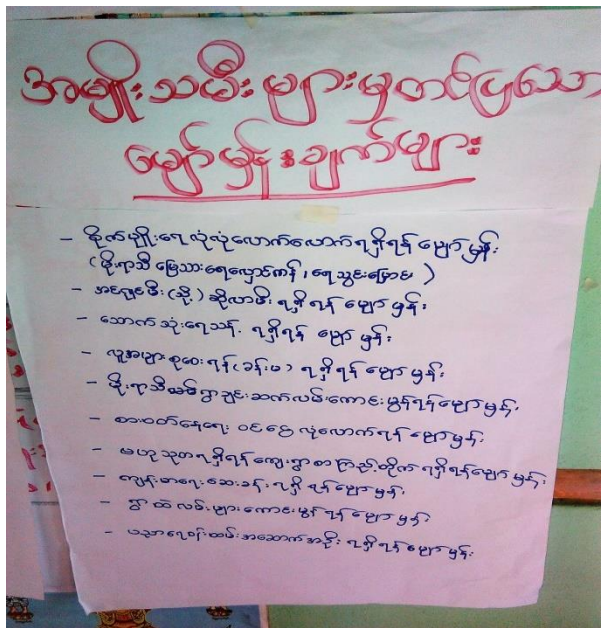 အမျိုးသမီးများမှတင်ပြသော
မျှော်မှန်းချက်များ
- စိုက်ပျိုးရေလုံလုံလောက်လောက်ရရှိရန် မျှော်မှန်း
(မိုးရာသီမြေသားရေလှောင်ကန်၊ ရေသွင်းမြောင်း)
- အင်ဂျင်မီး (သို့) ဆိုလာမီး ရရှိရန် မျှော်မှန်း
- သောက်သုံးရေသန့် ရရှိရန် မျှော်မှန်း
- လူအများစုဝေးရန် (ခန်းမ) ရရှိရန် မျှော်မှန်း
- မိုးရာသီ ရွာချင်းဆက်လမ်းကောင်းမွန်ရန်မျှော်မှန်း
- စားဝတ်နေရေး ဝင်ငွေ လုံလောက်ရန် မျှော်မှန်း
- ဗဟုသုတရရှိရန်ကျေးရွာစာကြည့်တိုက် ရရှိရန်မျှော်မှန်း
- ကျန်းမာရေးဆေးခန်း ရရှိရန်မျှော်မှန်း
- ရွာထဲလမ်းများကောင်းမွန်ရန်မျှော်မှန်း
- ပညာရေဝန်ထမ်းအဆောက်အဦး ရရှိရန်မျှော်မှန်း